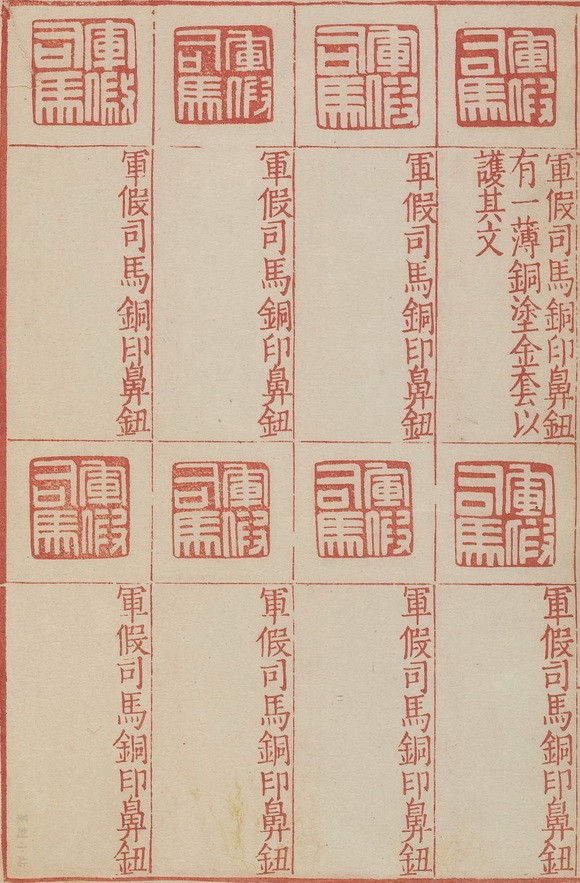 軍假司馬
軍假司馬銅印鼻鈕
有一薄銅塗金套以
護其文
軍假司馬
軍假司馬銅印鼻鈕
軍假司馬
軍假司馬銅印鼻鈕
軍假司馬
軍假司馬銅印鼻鈕
軍假司馬
軍假司馬銅印鼻鈕
軍假司馬
軍假司馬銅印鼻鈕
軍假司馬
軍假司馬銅印鼻鈕
軍假司馬
軍假司馬銅印鼻鈕